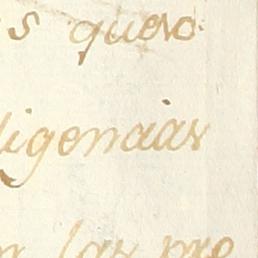 s quero
ligencias
las pre